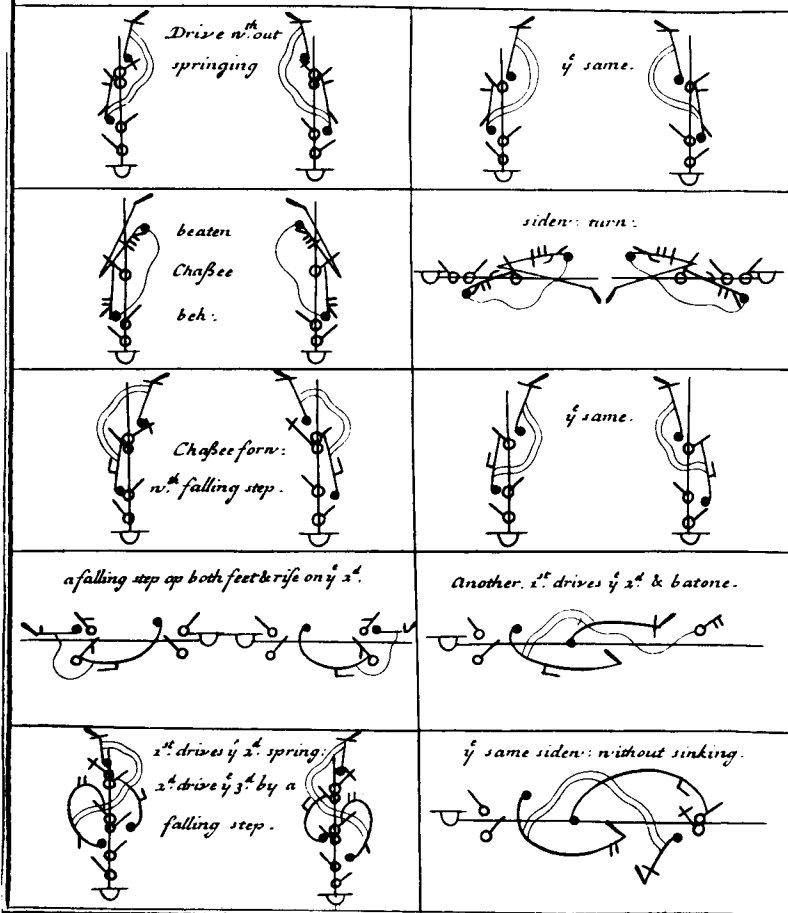 Drive wth out
springing
ye same.
beaten
Chaßee
beh:
sidew: turn:
Chaßee forw:
wth falling step.
ye same.
a falling step op both feet & rise on ye 2d.
Another. 1st drives ye 2d & batone.
1st drives ye 2d spring:
2d drive ye 3d by a
falling step.
ye same sidew: without sinking.